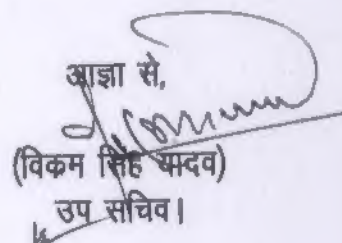 आज्ञा से,
(विकम सिंह यादव)
उप सचिव।